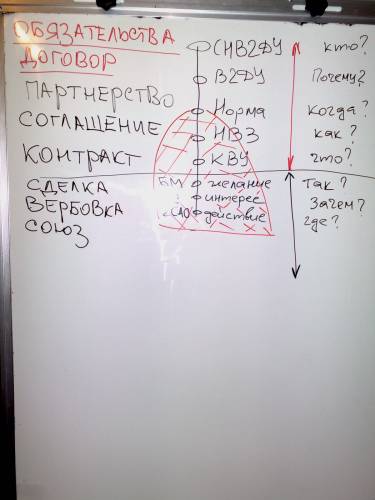 ОБЯЗАТЕЛЬСТВА СНВ2ФУ кто?
ДОГОВОР В2ФУ Почему?
ПАРТНЕРСТВО Норма Когда?
СОГЛАШЕНИЕ НВЗ как?
КОНТРАКТ КВУ что?
СДЕЛКА БМ желание Так?
ВЕРБОВКА интерес Зачем?
СОЮЗ действие где?